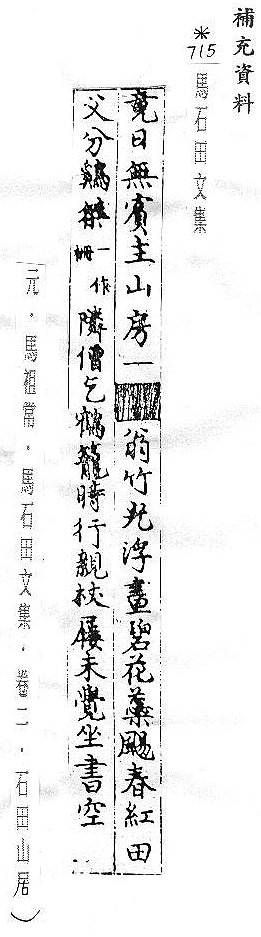 補充資料
*715
馬石田文集
竟日無賓主山房一翁竹光浮畫碧花藥颺春紅田
父分鷄雛一作隣僧乞鶴籠時行親杖屨未覺坐書空
元．馬祖常．馬石田文集．卷二．石田山居）